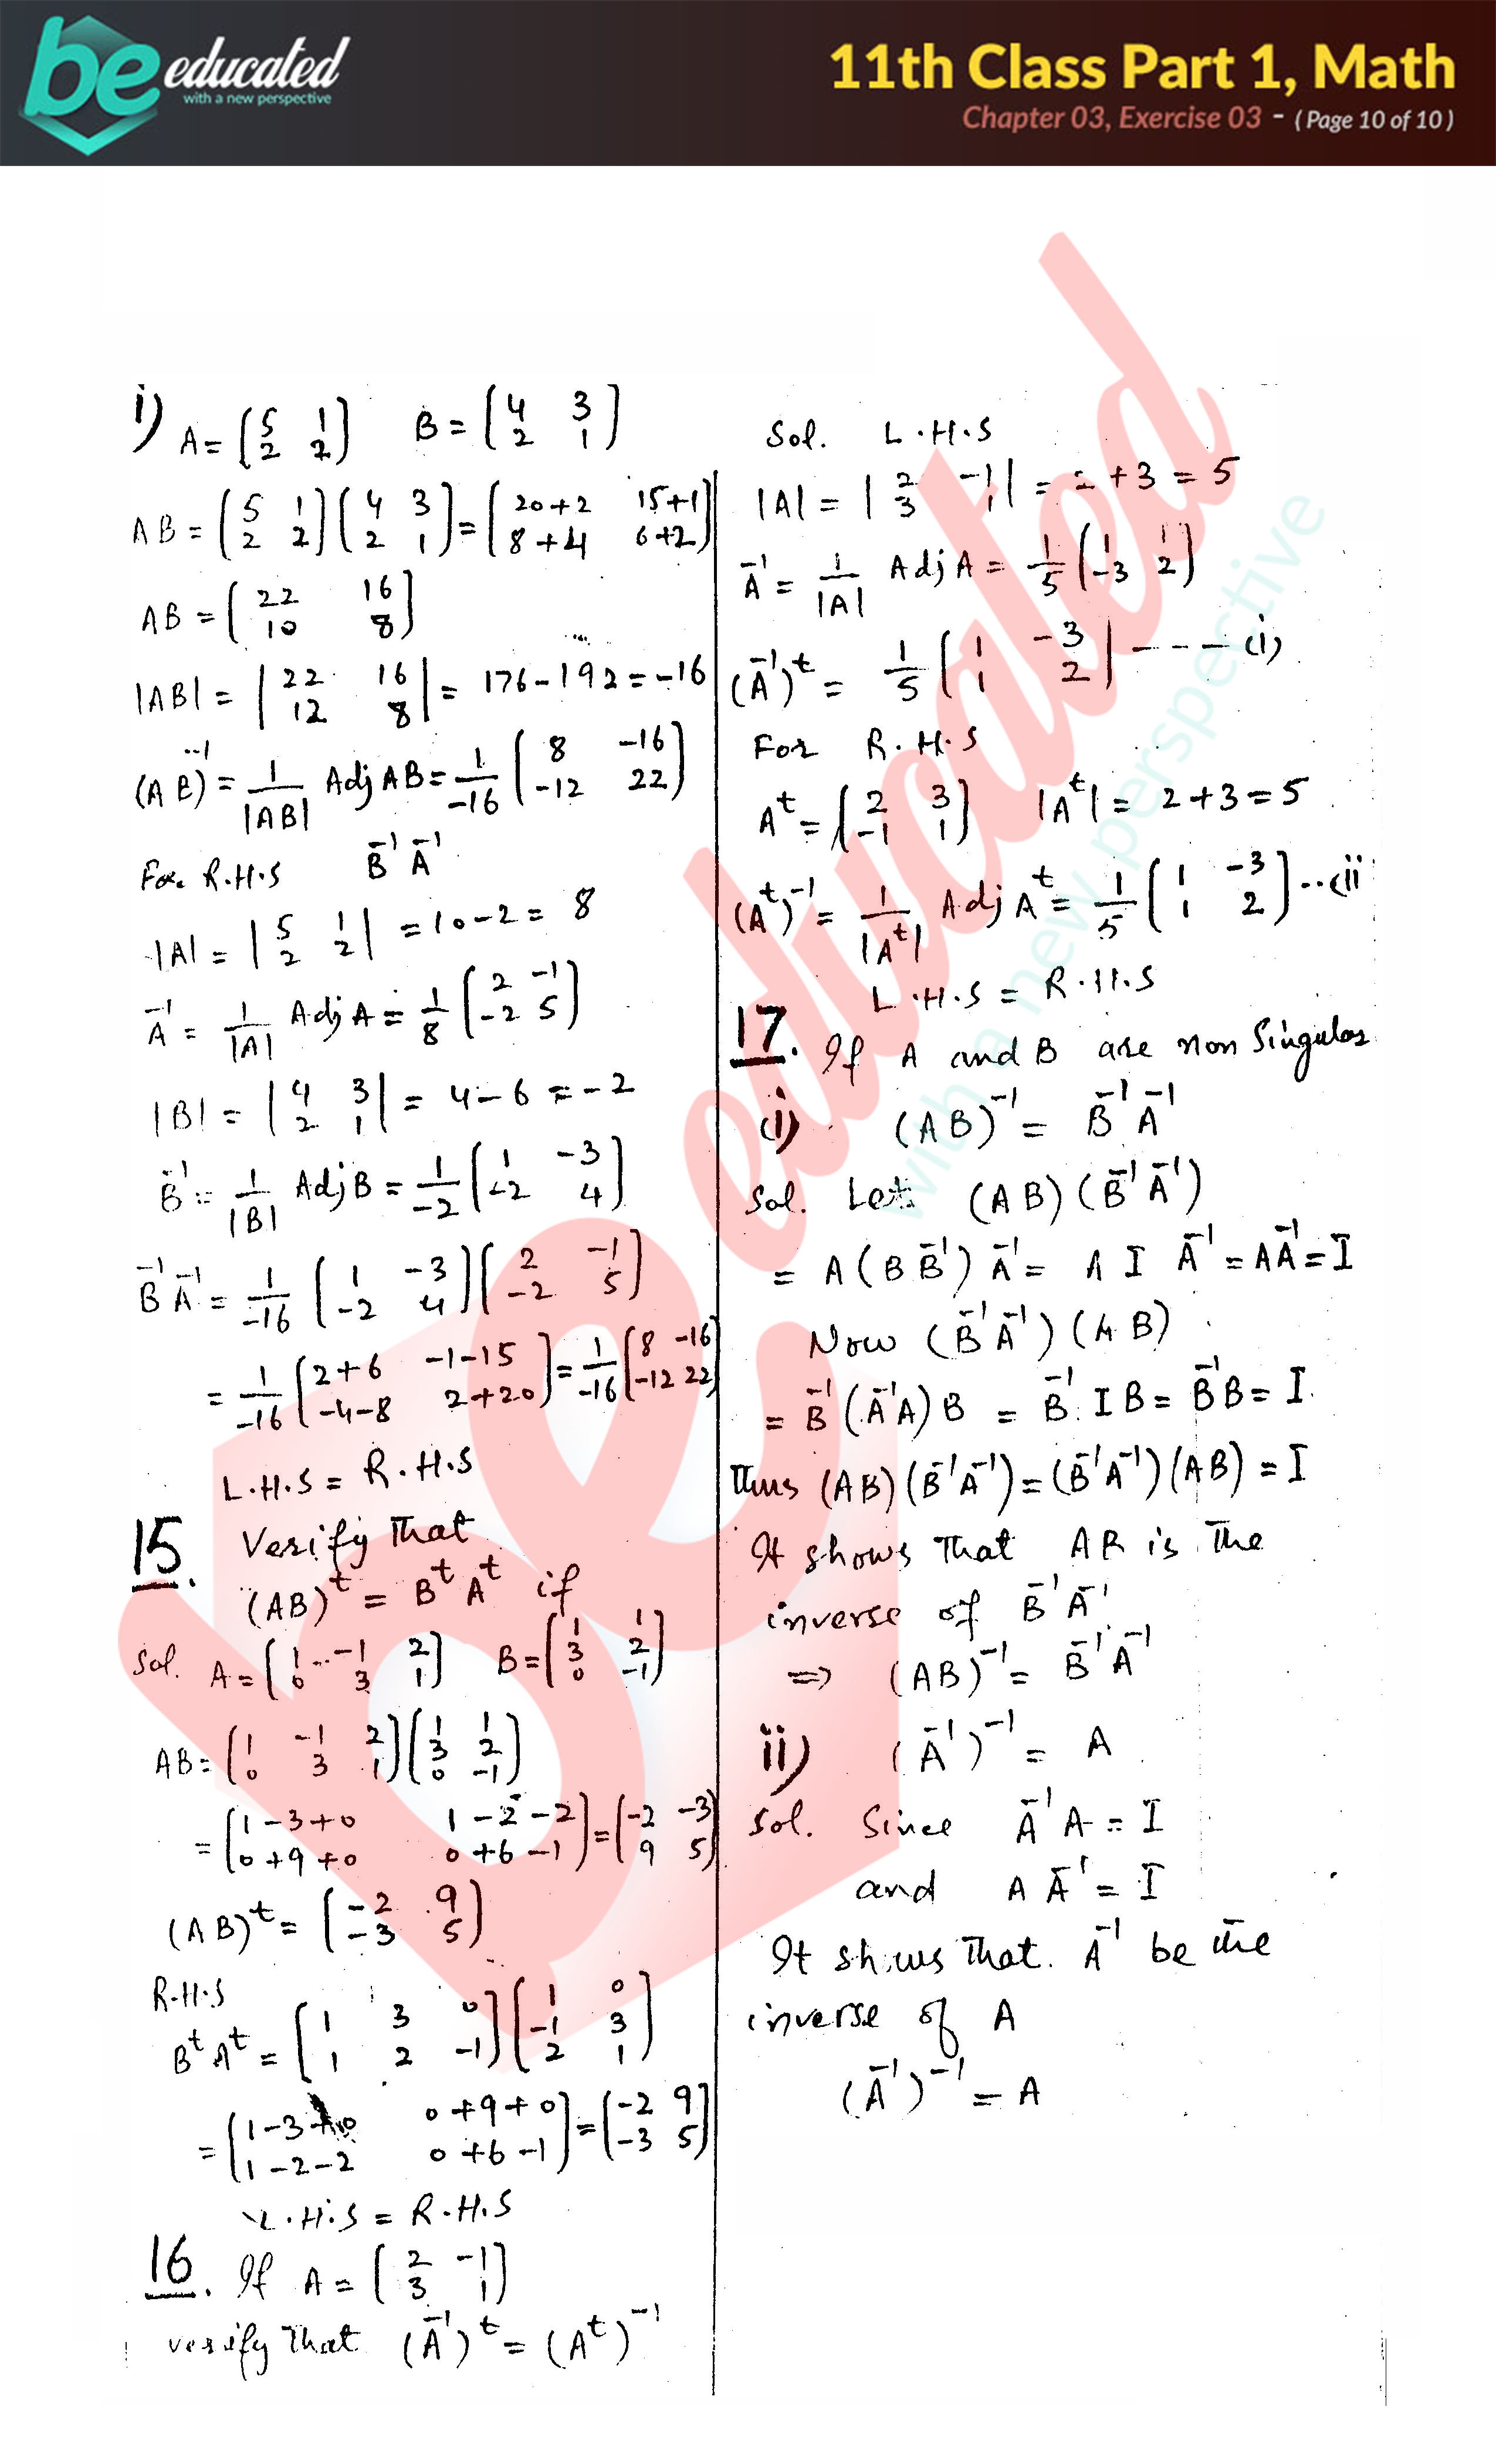 be educated
with a new perspective
11th Class Part 1, Math
Chapter 03, Exercise 03 - ( Page 10 of 10 )
i) A = [5 1; 2 2] B = [4 3; 2 1]
AB = [5 1; 2 2][4 3; 2 1] = [20+2 15+1; 8+4 6+2]
AB = [22 16; 10 8]
|AB| = |22 16; 12 8| = 176-192 = -16
(AB)⁻¹ = 1/|AB| Adj AB = 1/-16 [8 -16; -12 22]
For R.H.S B⁻¹ A⁻¹
|A| = |5 1; 2 2| = 10-2 = 8
A⁻¹ = 1/|A| Adj A = 1/8 [2 -1; -2 5]
|B| = |4 3; 2 1| = 4-6 = -2
B⁻¹ = 1/|B| Adj B = 1/-2 [1 -3; -2 4]
B⁻¹ A⁻¹ = 1/-16 [1 -3; -2 4][2 -1; -2 5]
= 1/-16 [2+6 -1-15; -4-8 2+20] = 1/-16 [8 -16; -12 22]
L.H.S = R.H.S
15. Verify That
(AB)ᵗ = Bᵗ Aᵗ if
Sol. A = [1 -1 2; 0 3 1] B = [1 1; 3 2; 0 -1]
AB = [1 -1 2; 0 3 1][1 1; 3 2; 0 -1]
= [1-3+0 1-2-2; 0+9+0 0+6-1] = [-2 -3; 9 5]
(AB)ᵗ = [-2 9; -3 5]
R.H.S
Bᵗ Aᵗ = [1 3 0; 1 2 -1][1 0; -1 3; 2 1]
= [1-3+0 0+9+0; 1-2-2 0+6-1] = [-2 9; -3 5]
L.H.S = R.H.S
16. If A = [2 -1; 3 1]
verify That (A⁻¹)ᵗ = (Aᵗ)⁻¹
Sol. L.H.S
|A| = |2 -1; 3 1| = 2+3 = 5
A⁻¹ = 1/|A| Adj A = 1/5 [1 1; -3 2]
(A⁻¹)ᵗ = 1/5 [1 -3; 1 2] ---- (i)
For R.H.S
Aᵗ = [2 3; -1 1] |Aᵗ| = 2+3 = 5
(Aᵗ)⁻¹ = 1/|Aᵗ| Adj Aᵗ = 1/5 [1 -3; 1 2] ... (ii
L.H.S = R.H.S
17. If A and B are non Singular
(i) (AB)⁻¹ = B⁻¹ A⁻¹
Sol. Let (AB)(B⁻¹ A⁻¹)
= A(B B⁻¹) A⁻¹ = A I A⁻¹ = A A⁻¹ = I
Now (B⁻¹ A⁻¹)(AB)
= B⁻¹ (A⁻¹ A) B = B⁻¹ I B = B⁻¹ B = I
Thus (AB)(B⁻¹ A⁻¹) = (B⁻¹ A⁻¹)(AB) = I
It shows That AB is The
inverse of B⁻¹ A⁻¹
⇒ (AB)⁻¹ = B⁻¹ A⁻¹
ii) (A⁻¹)⁻¹ = A
Sol. Since A⁻¹ A = I
and A A⁻¹ = I
It shows That. A⁻¹ be the
inverse of A
(A⁻¹)⁻¹ = A
be educated
with a new perspective